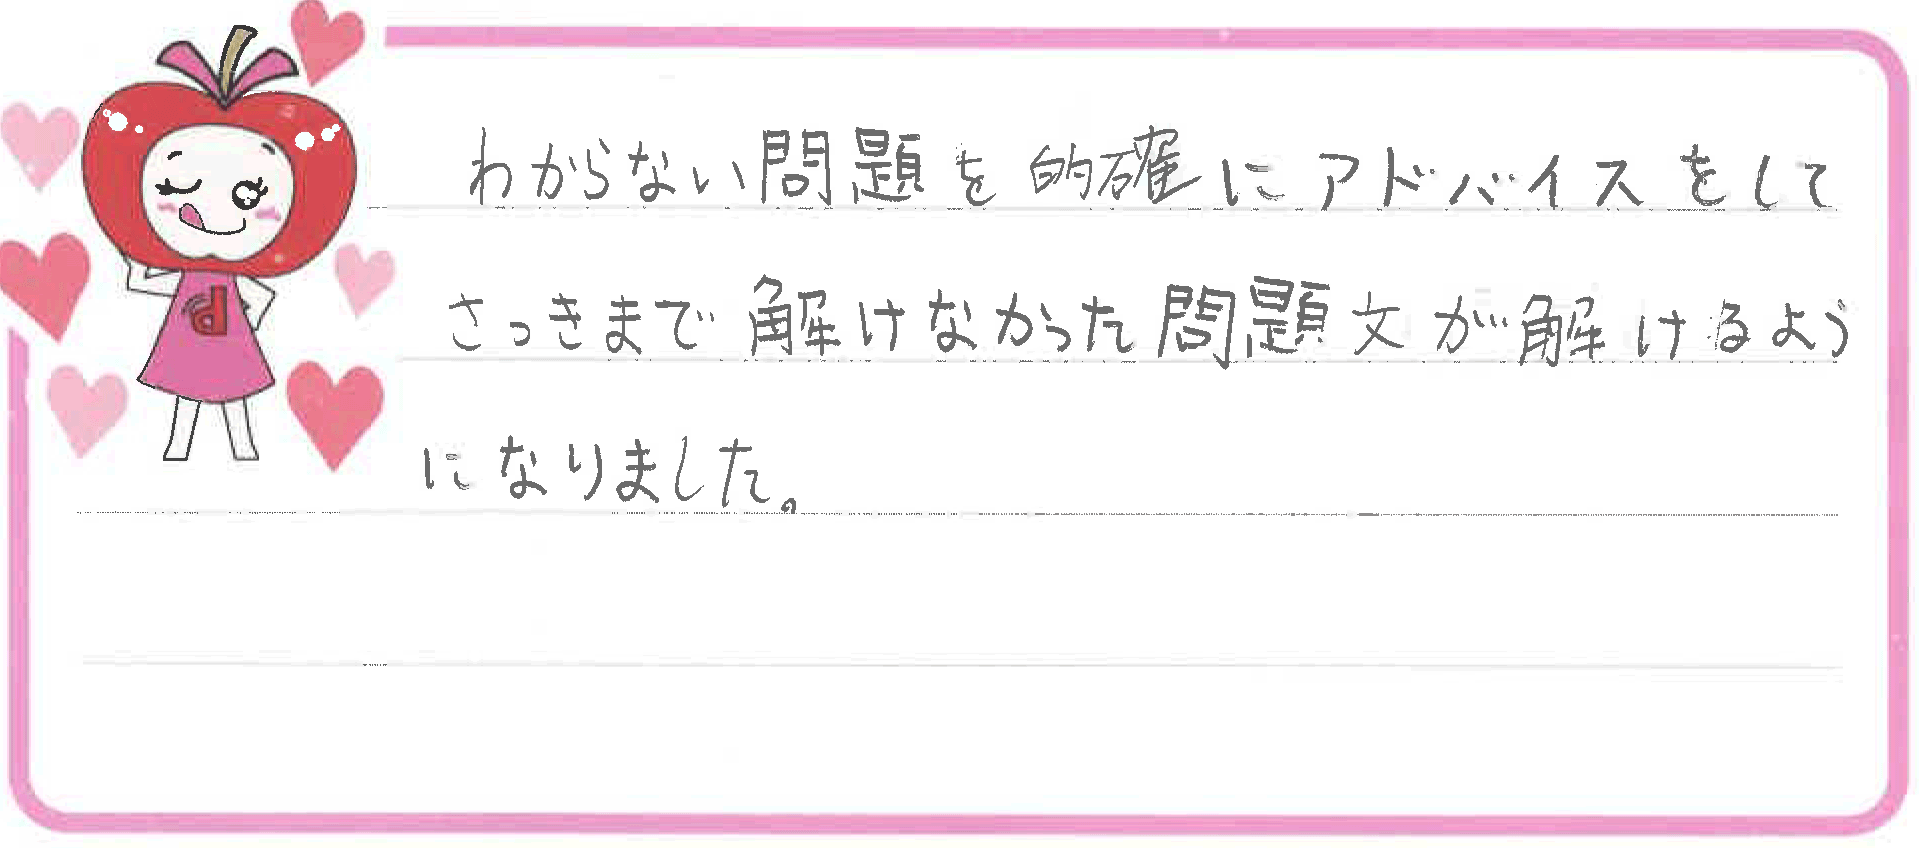 わからない問題を的確にアドバイスをして
さっきまで解けなかった問題文が解けるよう
になりました。